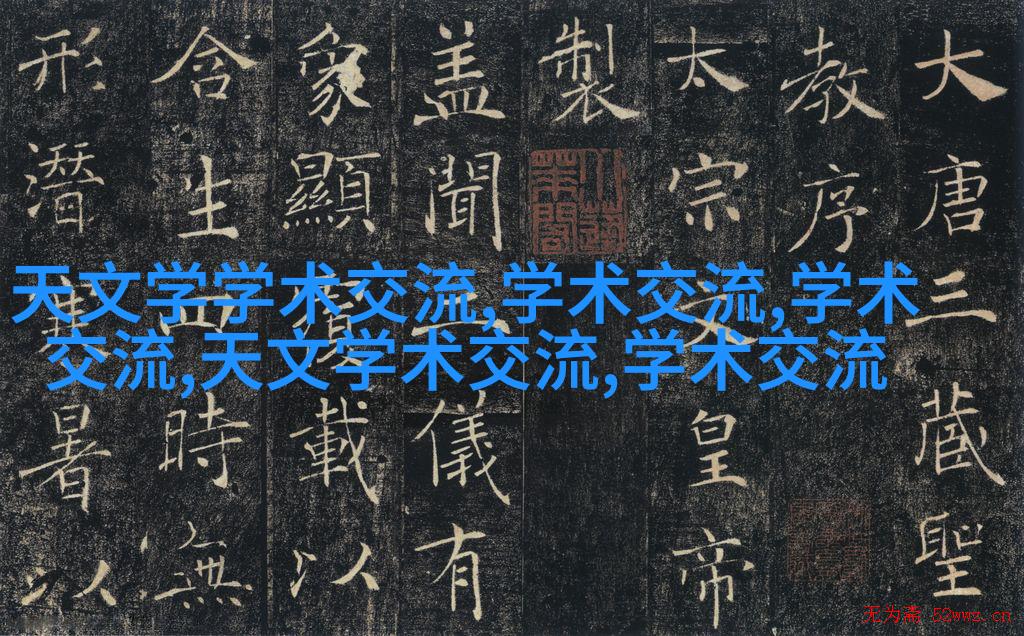 大唐三藏聖
教序
太宗文皇帝
製
盖聞二儀有
象顯覆載以
含生四時無
形潛寒暑以
天文学学术交流,学术交流,学术
交流,天文学术交流,学术交流
无为斋 52wwz.cn